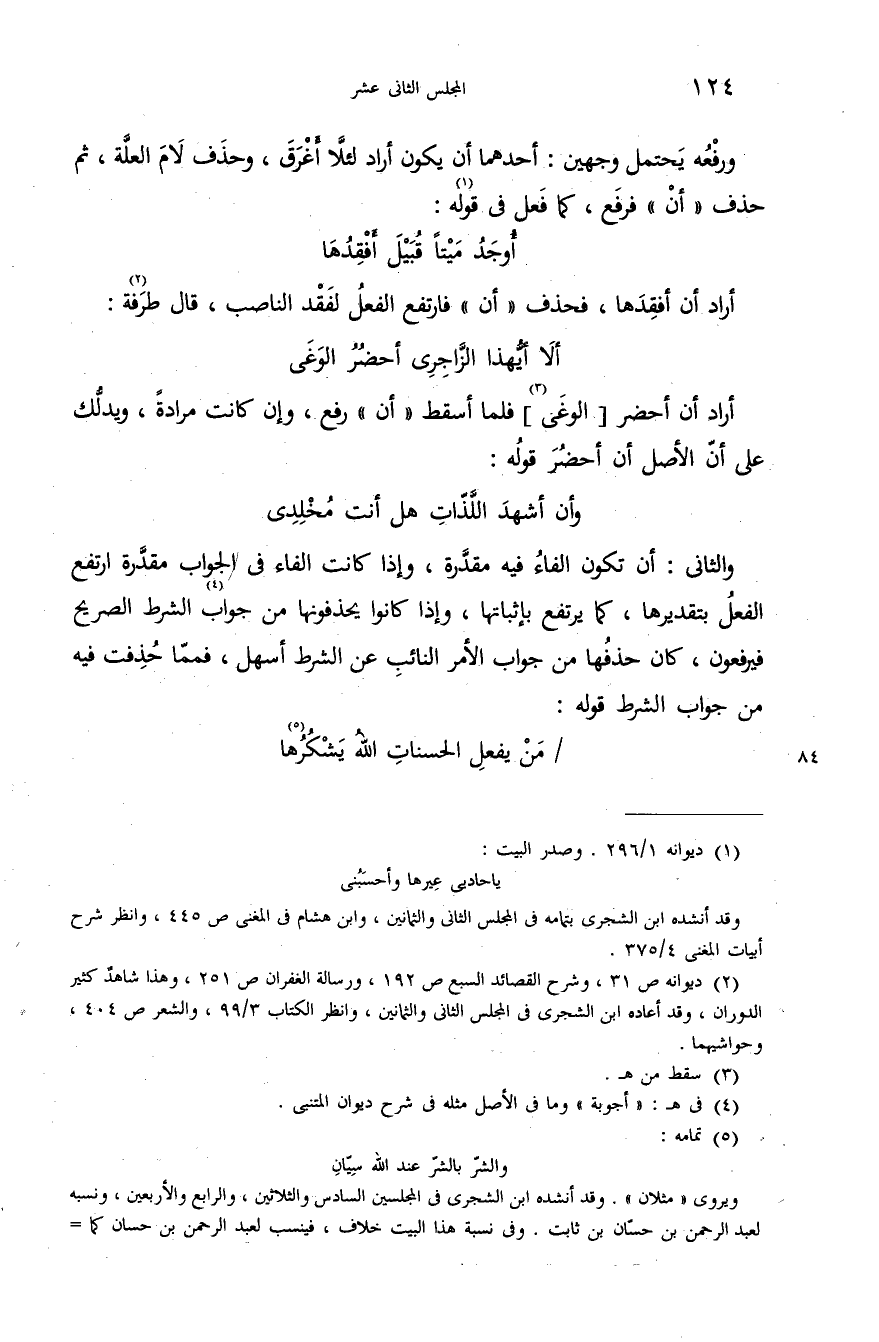 ١٢٤ المجلس الثانى عشر
ورفْعُه يَحتمل وجهين : أحدهما أن يكون أراد لئلَّا أَغْرَقَ ، وحذَف لَامَ العلَّة ، ثم
حذف « أنْ » فرفَع ، كما فَعل فى قوله(١) :
أُوجَدُ مَيْتاً قُبَيْلَ أَفْقِدُهَا
أراد أن أفقِدَها ، فحذف « أن » فارتفع الفعلُ لفَقْد الناصب ، قال طرَفة(٢) :
ألَا أيُّهذا الزَّاجِرِى أحضُرُ الوَغَى
أراد أن أحضر [ الوغَى(٣) ] فلما أسقط « أن » رفع ، وإن كانت مرادةً ، ويدلُّك
على أنّ الأصل أن أحضُرَ قولُه :
وأن أشهدَ اللَّذّاتِ هل أنت مُخْلِدِى
والثانى : أن تكون الفاءُ فيه مقدَّرة ، وإذا كانت الفاء فى الجواب مقدَّرة ارتفع
الفعلُ بتقديرها ، كما يرتفع بإثباتها ، وإذا كانوا يحذفونها من جواب(٤) الشرط الصريح
فيرفعون ، كان حذفُها من جواب الأمر النائبِ عن الشرط أسهل ، فممّا حُذِفت فيه
من جواب الشرط قوله :
/ مَنْ يفعلِ الحسناتِ اللهُ يَشْكُرُها(٥)
٨٤
(١) ديوانه ٢٩٦/١ . وصدر البيت :
ياحاديى عِيرها وأحسَبُنى
وقد أنشده ابن الشجرى بتمامه فى المجلس الثانى والثمانين ، وابن هشام فى المغنى ص ٤٤٥ ، وانظر شرح
أبيات المغنى ٣٧٥/٤ .
(٢) ديوانه ص ٣١ ، وشرح القصائد السبع ص ١٩٢ ، ورسالة الغفران ص ٢٥١ ، وهذا شاهدٌ كثير
الدوران ، وقد أعاده ابن الشجرى فى المجلس الثانى والثمانين ، وانظر الكتاب ٩٩/٣ ، والشعر ص ٤٠٤ ،
وحواشيهما .
(٣) سقط من هـ .
(٤) فى هـ : « أجوبة » وما فى الأصل مثله فى شرح ديوان المتنبى .
(٥) تمامه :
والشرّ بالشرّ عند الله سِيّانِ
ويروى « مثلان » . وقد أنشده ابن الشجرى فى المجلسين السادس والثلاثين ، والرابع والأربعين ، ونسبه
لعبد الرحمن بن حسّان بن ثابت . وفى نسبة هذا البيت خلاف ، فينسب لعبد الرحمن بن حسان كما =